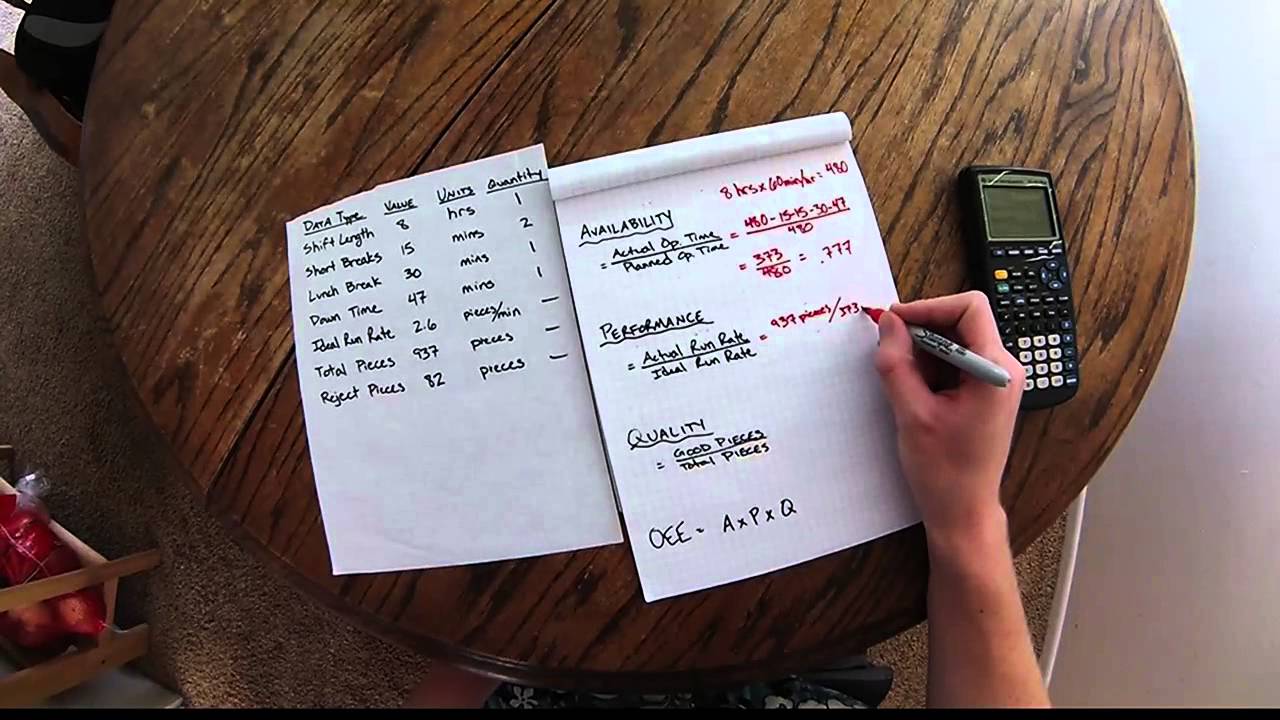 DATA TYPE VALUE UNITS Quantity
Shift Length 8 hrs 1
Short Breaks 15 mins 2
Lunch Break 30 mins 1
Down Time 47 mins 1
Ideal Run Rate 2.6 pieces/min —
Total Pieces 937 pieces —
Reject Pieces 82 pieces —
8 hrs x 60 min/hr = 480
AVAILABILITY
= Actual Op. Time / Planned Op. Time = 480-15-15-30-47 / 480
= 373/480 = .777
PERFORMANCE
= Actual Run Rate / Ideal Run Rate = 937 pieces/373
QUALITY
= GOOD PIECES / Total PIECES
OEE = A x P x Q